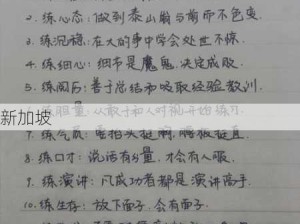 2. 练心态：做到泰山崩于前而不色变
3. 练沉稳：在大的事中学会处世不惊.
4. 练细心：细节是魔鬼.决定成败.
5. 善于总结和吸取经验教训.
新加坡
从敢于和人对视开始练习
7. 练气质：要抬头挺胸，腰板挺直
8. 练口才：说话有分量，才会有人服.
9. 练演讲：凡成功者都是演讲高手.
10. 练生存：放下面子.会有面子.